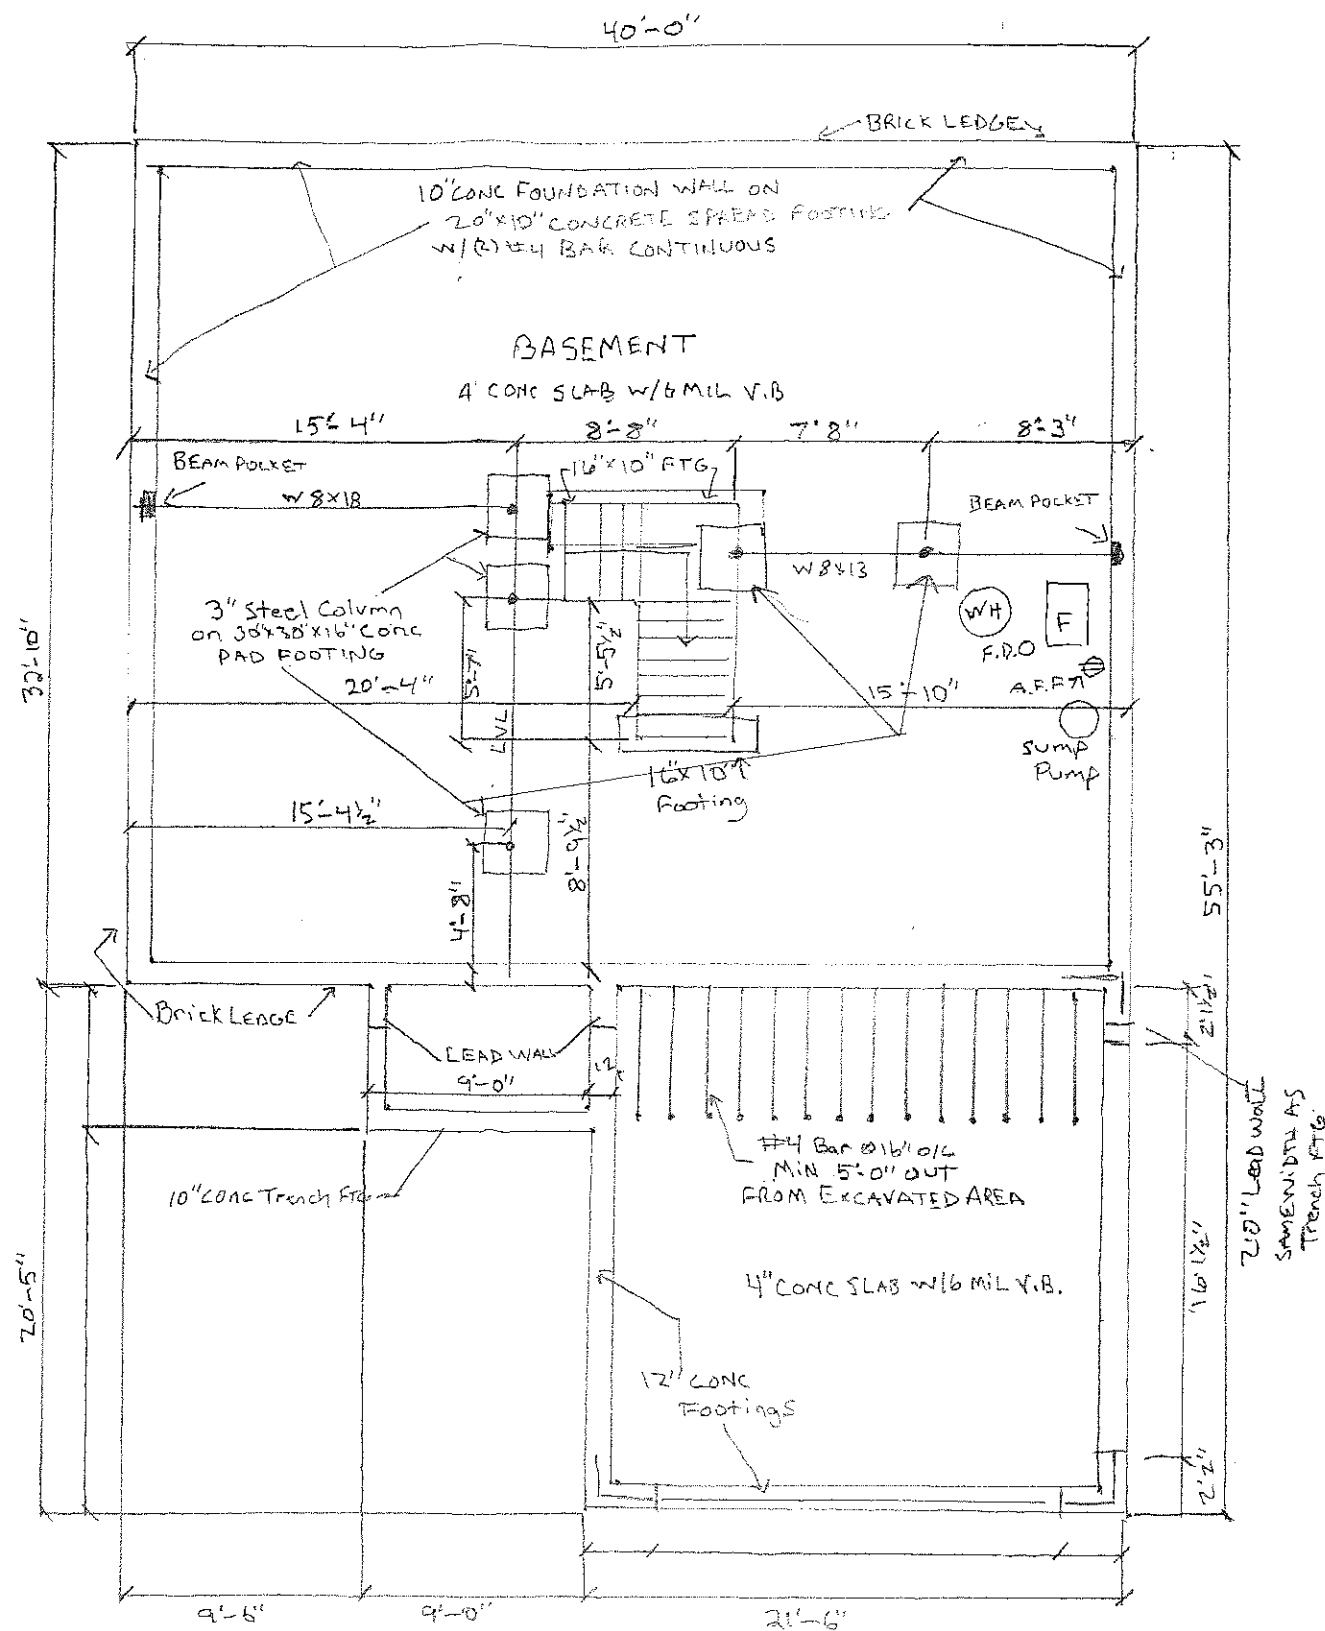 40'-0"
BRICK LEDGE
10" CONC FOUNDATION WALL ON
20"x10" CONCRETE SPREAD FOOTING
W/(2) #4 BAR CONTINUOUS
BASEMENT
4' CONC SLAB W/6 MIL V.B
15'-4"
8'-8"
7'8"
8'-3"
BEAM POCKET
16"x10" FTG
W 8x18
BEAM POCKET
W 8x13
3" Steel Column
on 30"x30"x16" Conc
PAD FOOTING
WH
F
F.D.O
A.F.F
32'-10"
20'-4"
5'-7"
5'-5½"
15'-10"
LVL
Sump
Pump
16"x10"
Footing
15'-4½"
8'-9½"
4'-8"
55'-3"
Brick LEDGE
LEAD WALL
9'-0"
12
2'1½"
#4 Bar @16" o/c
MIN 5'-0" OUT
FROM EXCAVATED AREA
10" CONC Trench FTG
2'0" Lead wall
SAME WIDTH AS
Trench FTG
20'-5"
4" CONC SLAB W/6 MIL V.B.
16'1½"
12" CONC
Footings
2'2"
9'-6"
9'-0"
21'-6"